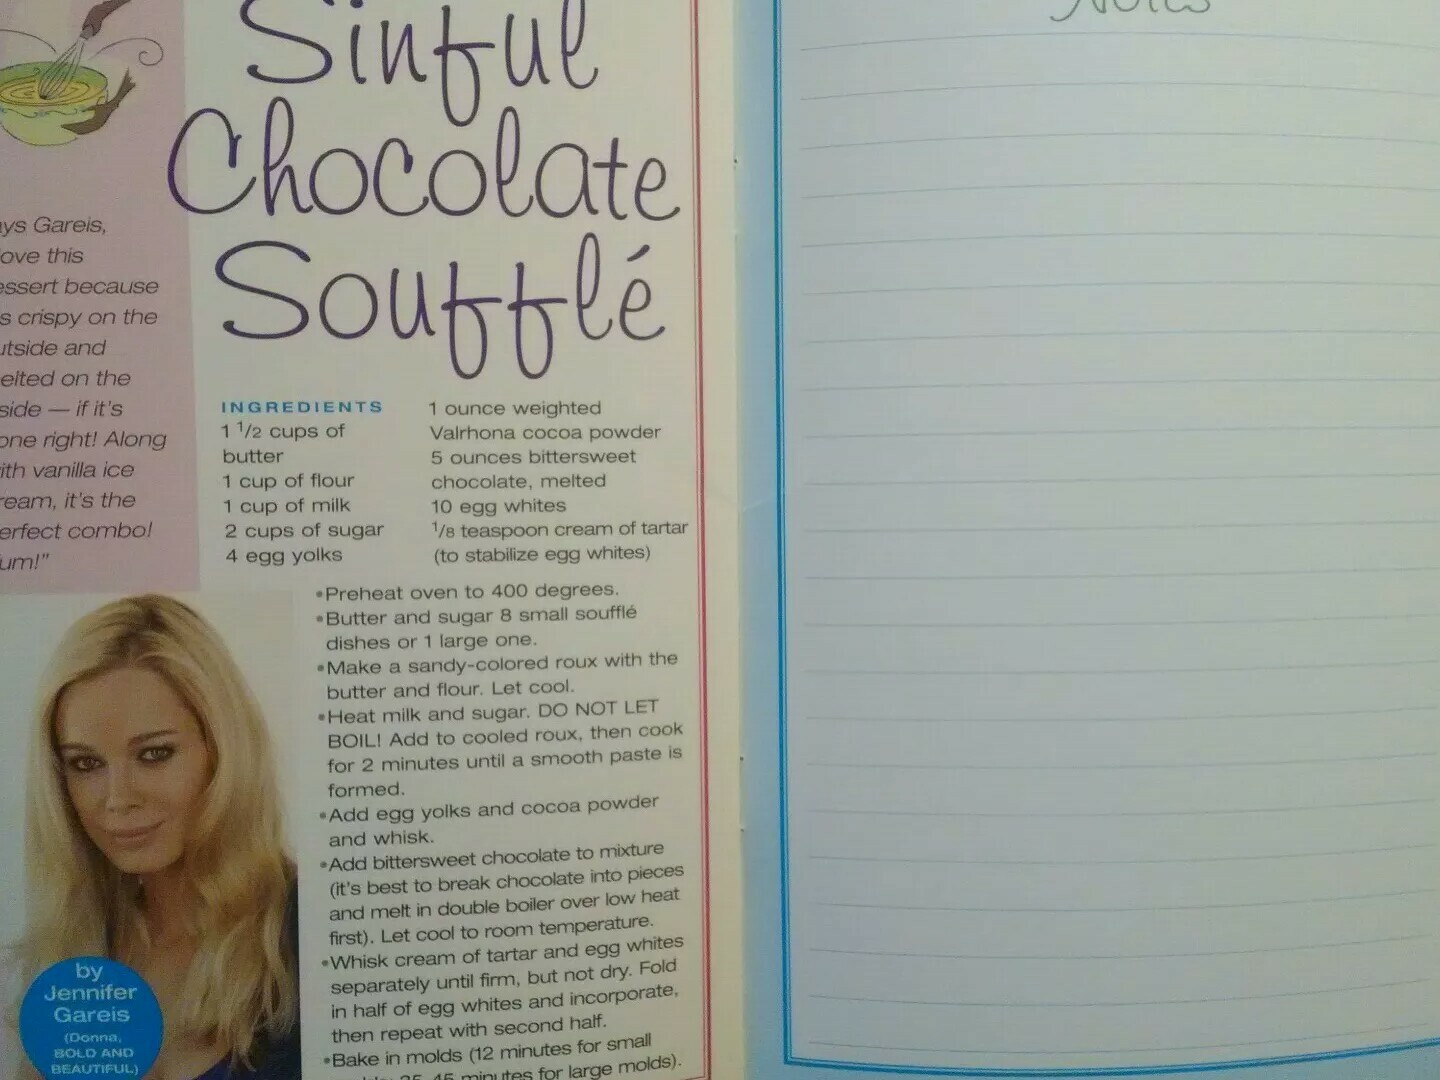 Sinful
Chocolate
Soufflé
Gareis,
this
because
crispy on the
and
on the
— if it's
right! Along
vanilla ice
it's the
combo!
INGREDIENTS
1 1/2 cups of
butter
1 cup of flour
1 cup of milk
2 cups of sugar
4 egg yolks
1 ounce weighted
Valrhona cocoa powder
5 ounces bittersweet
chocolate, melted
10 egg whites
1/8 teaspoon cream of tartar
(to stabilize egg whites)
•Preheat oven to 400 degrees.
•Butter and sugar 8 small soufflé
dishes or 1 large one.
•Make a sandy-colored roux with the
butter and flour. Let cool.
•Heat milk and sugar. DO NOT LET
BOIL! Add to cooled roux, then cook
for 2 minutes until a smooth paste is
formed.
•Add egg yolks and cocoa powder
and whisk.
•Add bittersweet chocolate to mixture
(it's best to break chocolate into pieces
and melt in double boiler over low heat
first). Let cool to room temperature.
•Whisk cream of tartar and egg whites
separately until firm, but not dry. Fold
in half of egg whites and incorporate,
then repeat with second half.
•Bake in molds (12 minutes for small
minutes for large molds).
by
Jennifer
Gareis
(Donna,
BOLD AND
BEAUTIFUL)
Notes